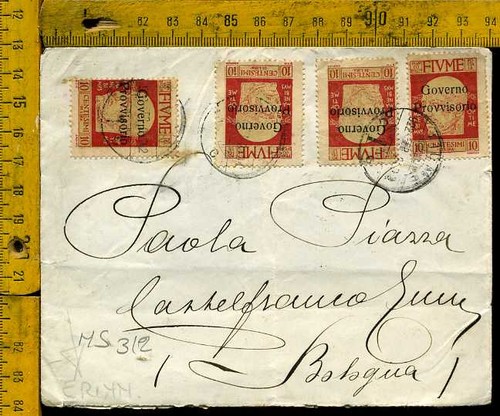 82 83 84 85 86 87 88 89 90 91 92 93
12
13
14
15
16
17
18
19
20
21
82
83
84
FIVME
CENTESIMI
10 10
Governo
Provvisorio
FIVME
CENTESIMI
10 10
Governo
Provvisorio
FIVME
CENTESIMI
10 10
Governo
Provvisorio
FIVME
CENTESIMI
10 10
Governo
Provvisorio
Paola Piazza
Castelfranco
(Bologna)
MS 312